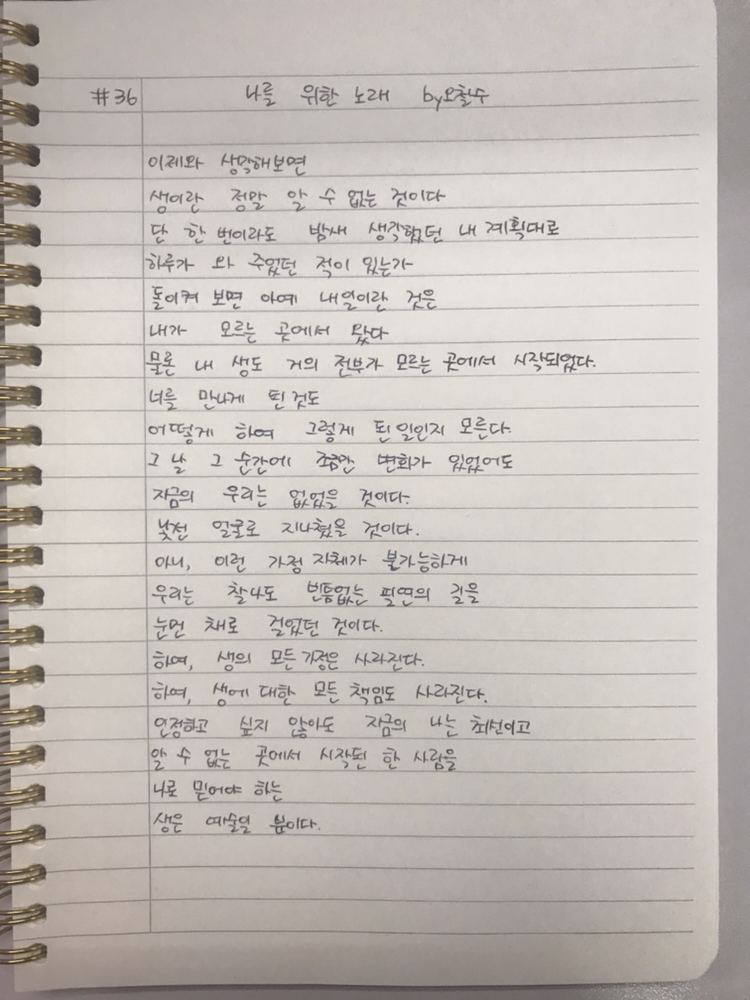 #36 나를 위한 노래 by오철수
이제와 생각해보면
생이란 정말 알 수 없는 것이다
단 한 번이라도 밤새 생각했던 내 계획대로
하루가 와 주었던 적이 있는가
돌이켜 보면 아예 내일이란 것은
내가 모르는 곳에서 왔다
물론 내 생도 거의 전부가 모르는 곳에서 시작되었다.
너를 만나게 된 것도
어떻게 하여 그렇게 된 일인지 모른다.
그 날 그 순간에 조금만 변화가 있었어도
지금의 우리는 없었을 것이다.
낯선 얼굴로 지나쳤을 것이다.
아니, 이런 가정 자체가 불가능하게
우리는 찰나도 빈틈없는 필연의 길을
눈먼 채로 걸었던 것이다.
하여, 생의 모든 가정은 사라진다.
하여, 생에 대한 모든 책임도 사라진다.
인정하고 싶지 않아도 지금의 나는 최선이고
알 수 없는 곳에서 시작된 한 사람을
나로 믿어야 하는
생은 예술일 뿐이다.